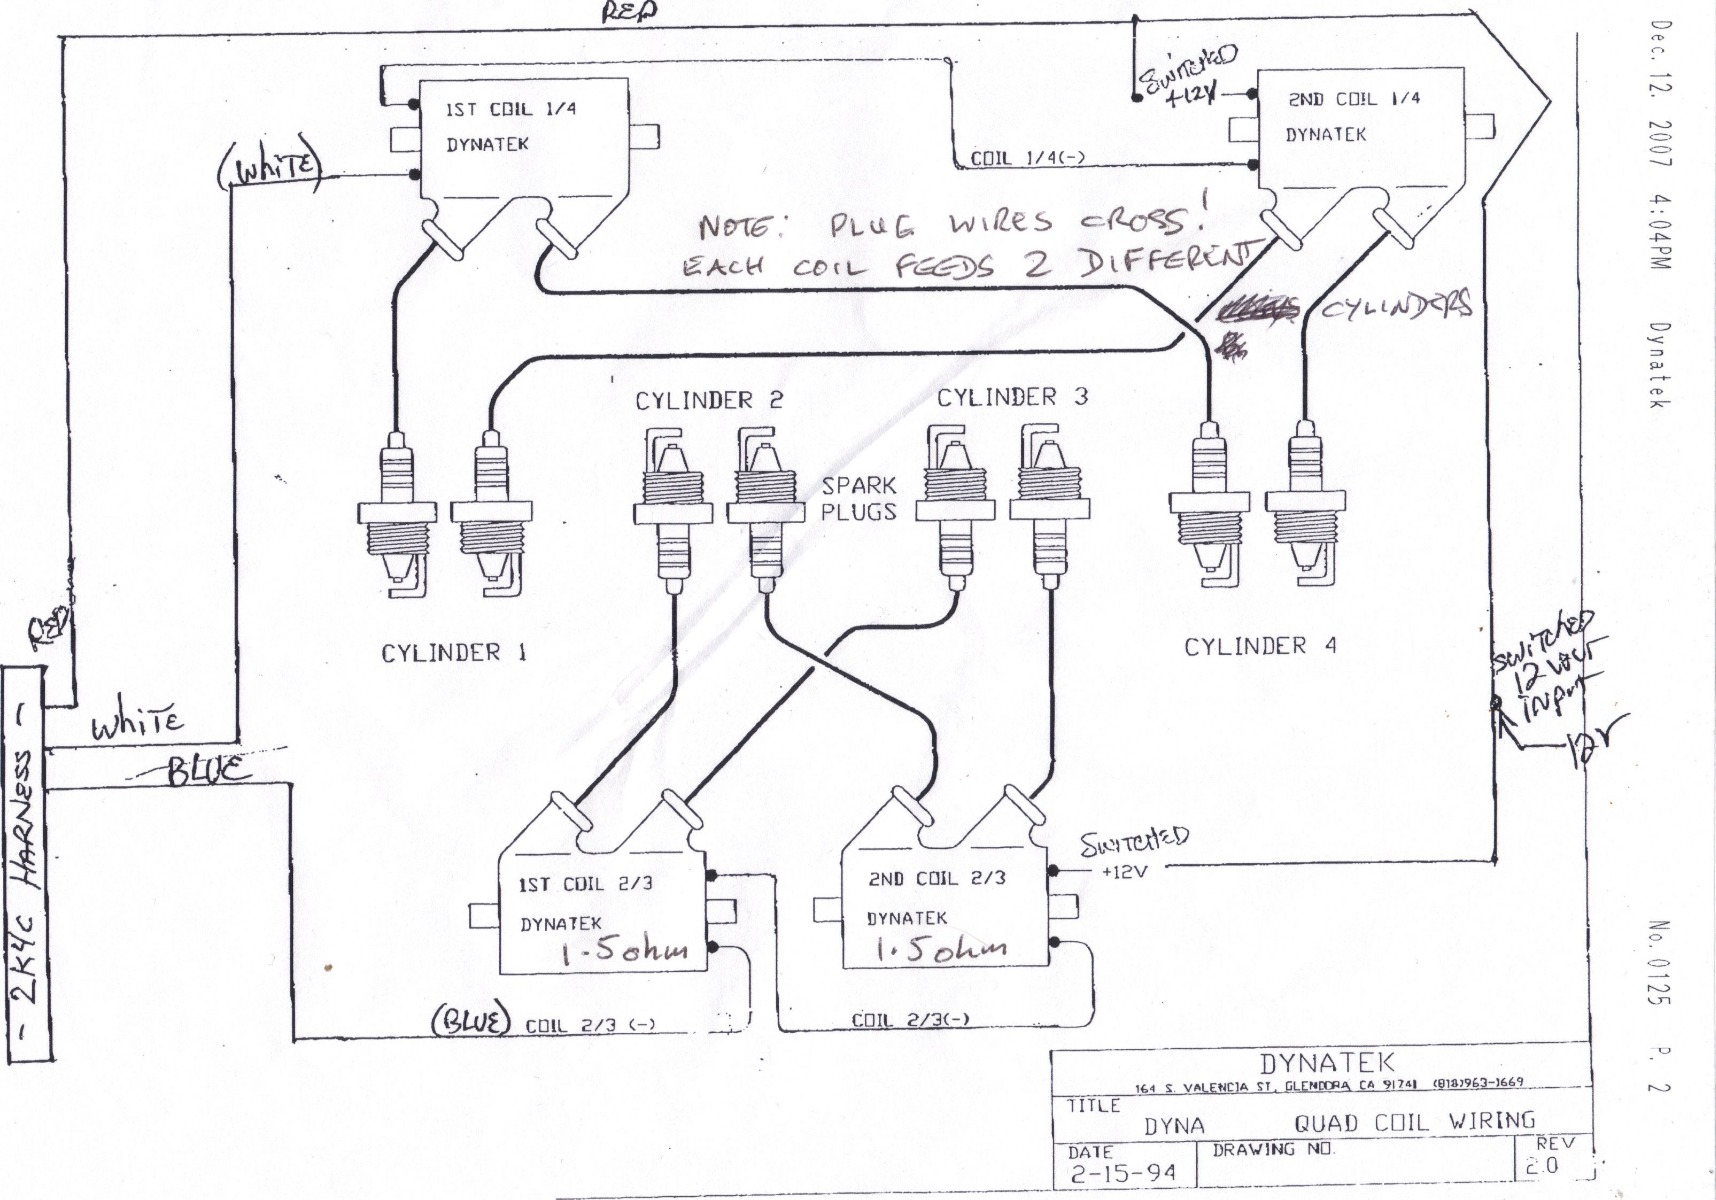 RED
Dec. 12. 2007 4:04PM Dynatek
No. 0125 P. 2
SWITCHED
+12V
1ST COIL 1/4
DYNATEK
2ND COIL 1/4
DYNATEK
(WHITE)
COIL 1/4(-)
NOTE: PLUG WIRES CROSS!
EACH COIL FEEDS 2 DIFFERENT
CYLINDERS
CYLINDER 2
CYLINDER 3
SPARK
PLUGS
CYLINDER 1
CYLINDER 4
RED
SWITCHED
12 VOLT
INPUT
12V
WHITE
BLUE
- 2K4C HARNESS -
SWITCHED
+12V
1ST COIL 2/3
DYNATEK
1.5 ohm
2ND COIL 2/3
DYNATEK
1.5 ohm
(BLUE) COIL 2/3 (-)
COIL 2/3(-)
DYNATEK
164 S. VALENCIA ST, GLENDORA, CA 91741 (818)963-1669
TITLE
DYNA QUAD COIL WIRING
DATE
2-15-94
DRAWING NO.
REV
2.0